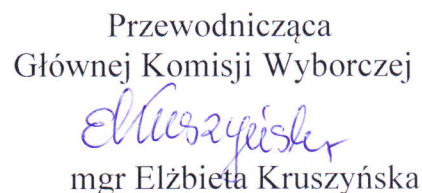 Przewodnicząca
Głównej Komisji Wyborczej
EKruszyńska
mgr Elżbieta Kruszyńska